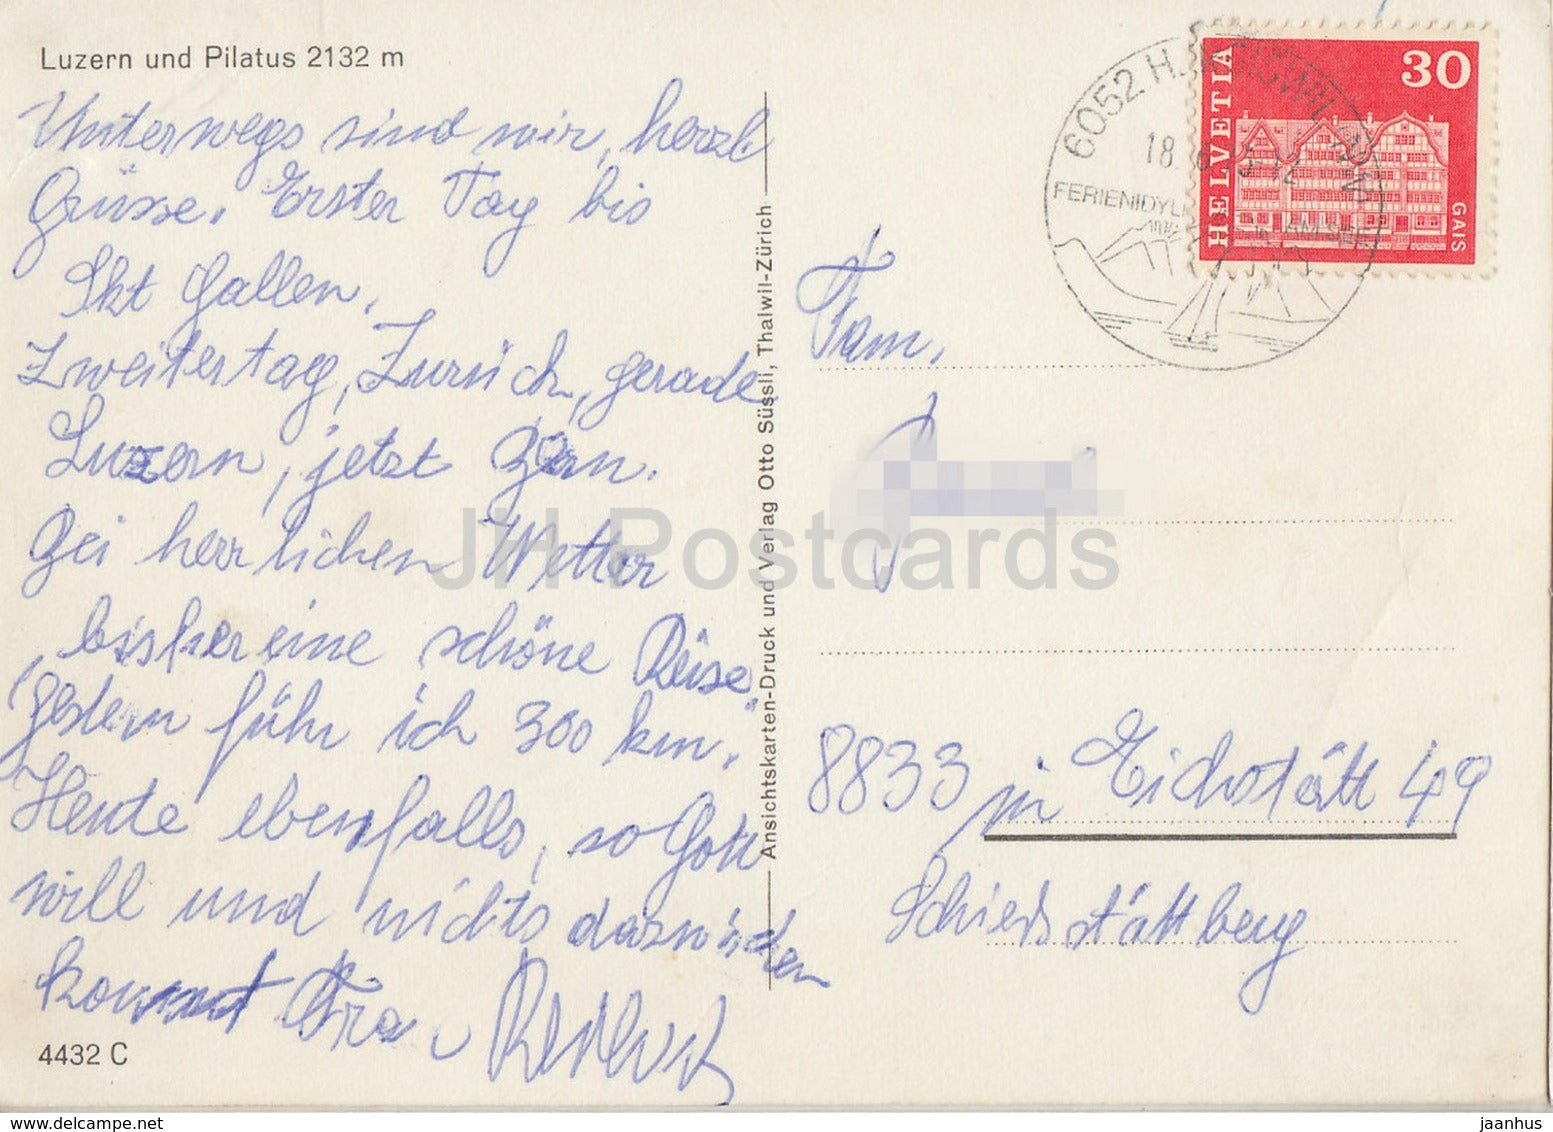 Luzern und Pilatus 2132 m
Unterwegs sind wir, herzl
Grüsse. Erster Tag bis
Skt Gallen.
Zweitertag, Zurück, gerade
Luzern, jetzt
Bei herrlichen Wetter
bisher eine schöne Reise.
Gestern führ ich 300 km.
Heute ebenfalls, so Gott
will und nichts dazwischen
kommt Fra
4432 C
Ansichtskarten-Druck und Verlag Otto Süssli, Thalwil-Zürich
6052 H
18.
FERIENIDYLL
AM SEE
HELVETIA
30
GAIS
Fam.
8833 in Eichstätt 49
Schiedsstättberg
JH Postcards
www.delcampe.net
jaanhus